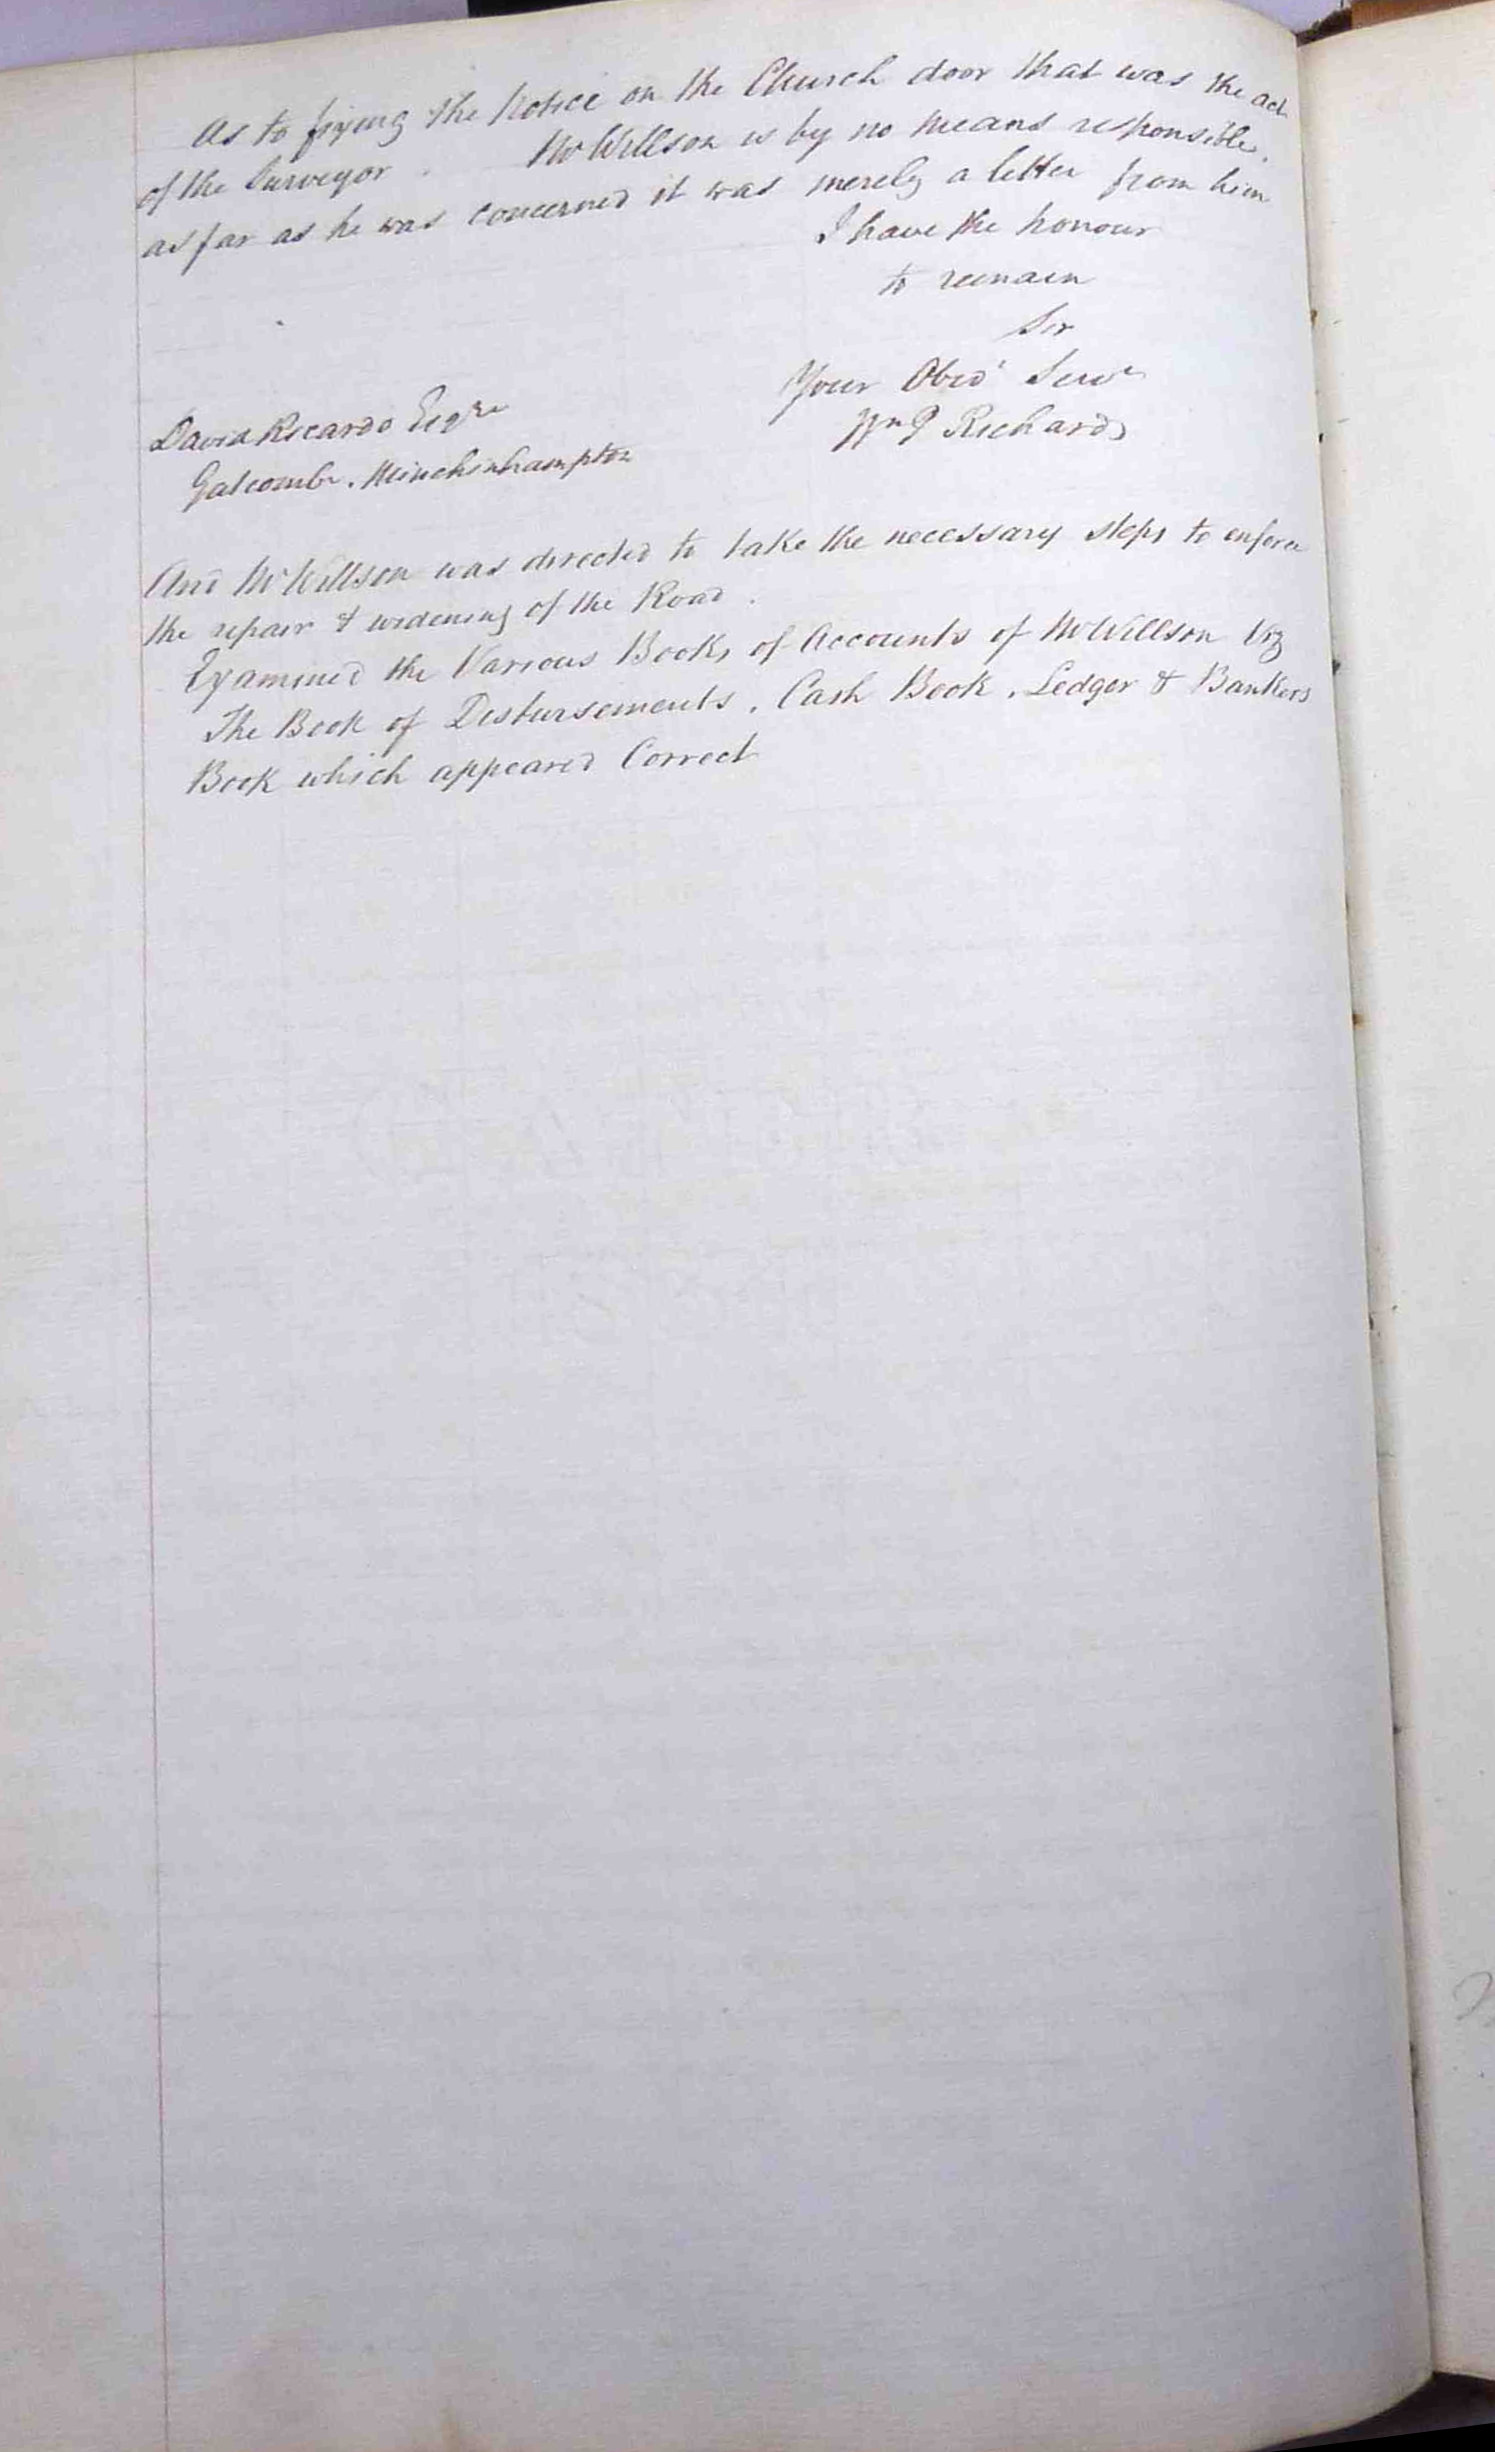 As to fixing the Notice on the Church door that was the act
of the Surveyor . Mr Willson is by no means responsible .
as far as he was concerned it was merely a letter from him
I have the honour
to remain
Sir
Your Obed't Serv't
Wm P Richards
David Ricardo Esqre
Gatcombe . Minchinhampton
And Mr Willson was directed to take the necessary steps to enforce
the repair & widening of the Road .
Examined the Various Books of Accounts of Mr Willson Viz
The Book of Disbursements . Cash Book . Ledger & Bankers
Book which appeared Correct